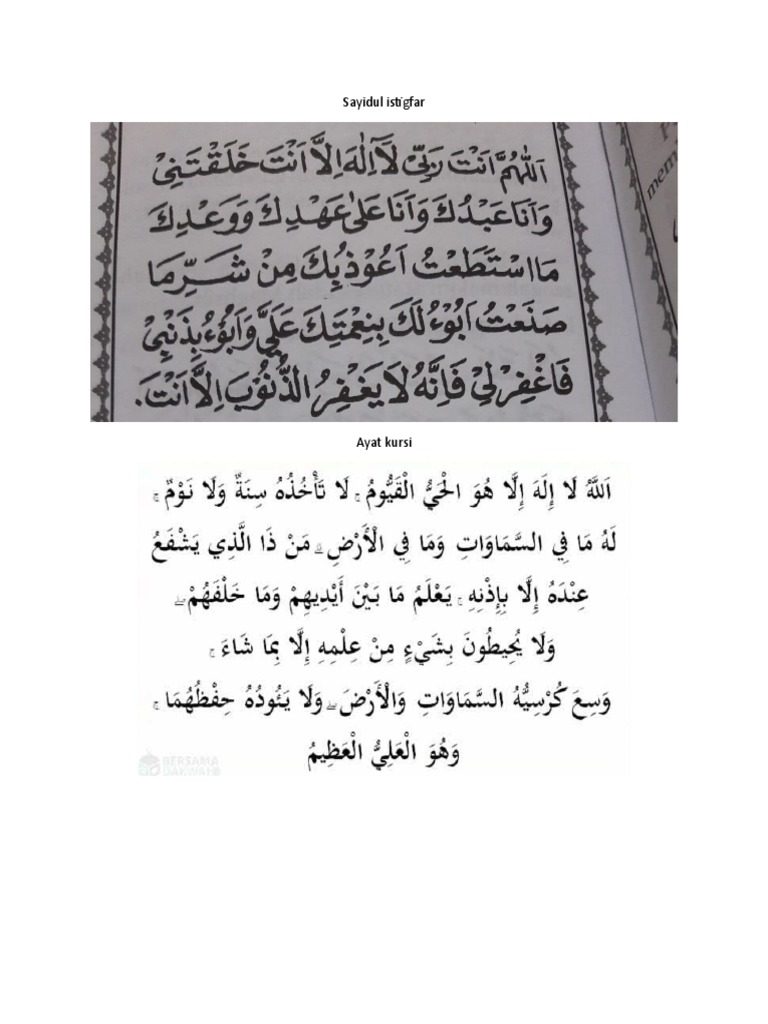 Sayidul istigfar
اَللّٰهُمَّ اَنْتَ رَبِّيْ لَآاِلٰهَ اِلَّا اَنْتَ خَلَقْتَنِيْ
وَاَنَا عَبْدُكَ وَاَنَا عَلٰى عَهْدِكَ وَوَعْدِكَ
مَااسْتَطَعْتُ اَعُوْذُبِكَ مِنْ شَرِّمَا
صَنَعْتُ اَبُوْءُلَكَ بِنِعْمَتِكَ عَلَيَّ وَاَبُوْءُبِذَنْبِيْ
فَاغْفِرْلِيْ فَاِنَّهُ لَايَغْفِرُ الذُّنُوْبَ اِلَّا اَنْتَ.
mem
Ayat kursi
اَللَّهُ لَا إِلَهَ إِلَّا هُوَ الْحَيُّ الْقَيُّومُ ۚ لَا تَأْخُذُهُ سِنَةٌ وَلَا نَوْمٌ ۚ
لَهُ مَا فِي السَّمَاوَاتِ وَمَا فِي الْأَرْضِ ۗ مَنْ ذَا الَّذِي يَشْفَعُ
عِنْدَهُ إِلَّا بِإِذْنِهِ ۚ يَعْلَمُ مَا بَيْنَ أَيْدِيهِمْ وَمَا خَلْفَهُمْ ۖ
وَلَا يُحِيطُونَ بِشَيْءٍ مِنْ عِلْمِهِ إِلَّا بِمَا شَاءَ ۚ
وَسِعَ كُرْسِيُّهُ السَّمَاوَاتِ وَالْأَرْضَ ۖ وَلَا يَئُودُهُ حِفْظُهُمَا ۚ
وَهُوَ الْعَلِيُّ الْعَظِيمُ
BERSAMA
DAKWAH